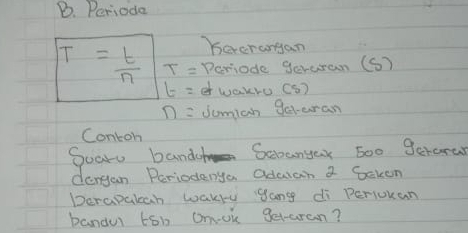 B. Periode
T = t/n
Keterangan
T = Periode getaran (s)
t = waktu (s)
n = Jumlah getaran
Contoh
Suatu bandul Sebanyak 500 getaran
dengan Periodenya adalah 2 Sekon
berapakah waktu yang di Perlukan
bandul tsb Untuk getaran?